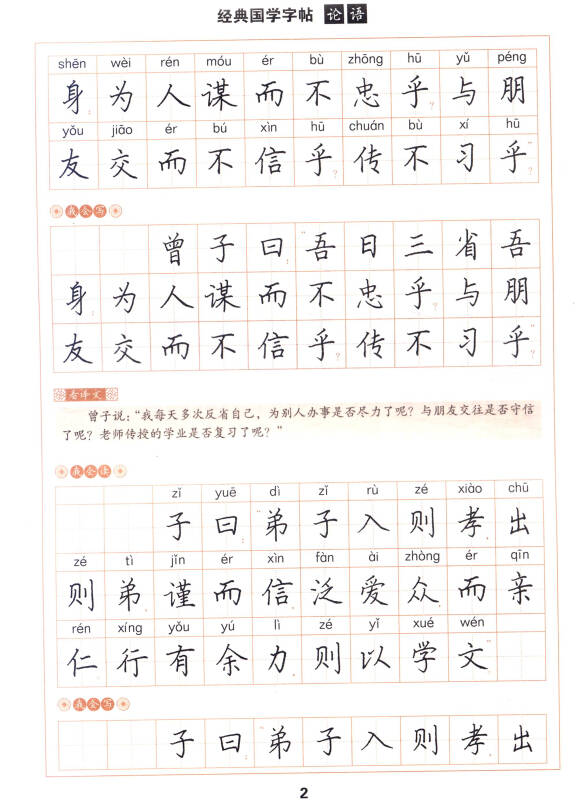 经典国学字帖 论语
shēn wèi rén móu ér bù zhōng hū yǔ péng
身：为人谋而不忠乎？与朋
yǒu jiāo ér bú xìn hū chuán bù xí hū
友交而不信乎？传不习乎？
我会写
曾子曰：“吾日三省吾
身：为人谋而不忠乎？与朋
友交而不信乎？传不习乎？”
看译文
曾子说：“我每天多次反省自己，为别人办事是否尽力了呢？与朋友交往是否守信
了呢？老师传授的学业是否复习了呢？”
我会读
zǐ yuē dì zǐ rù zé xiào chū
子曰：“弟子入则孝，出
zé tì jǐn ér xìn fàn ài zhòng ér qīn
则弟，谨而信，泛爱众，而亲
rén xíng yǒu yú lì zé yǐ xué wén
仁。行有余力，则以学文。”
我会写
子曰：“弟子入则孝，出
2